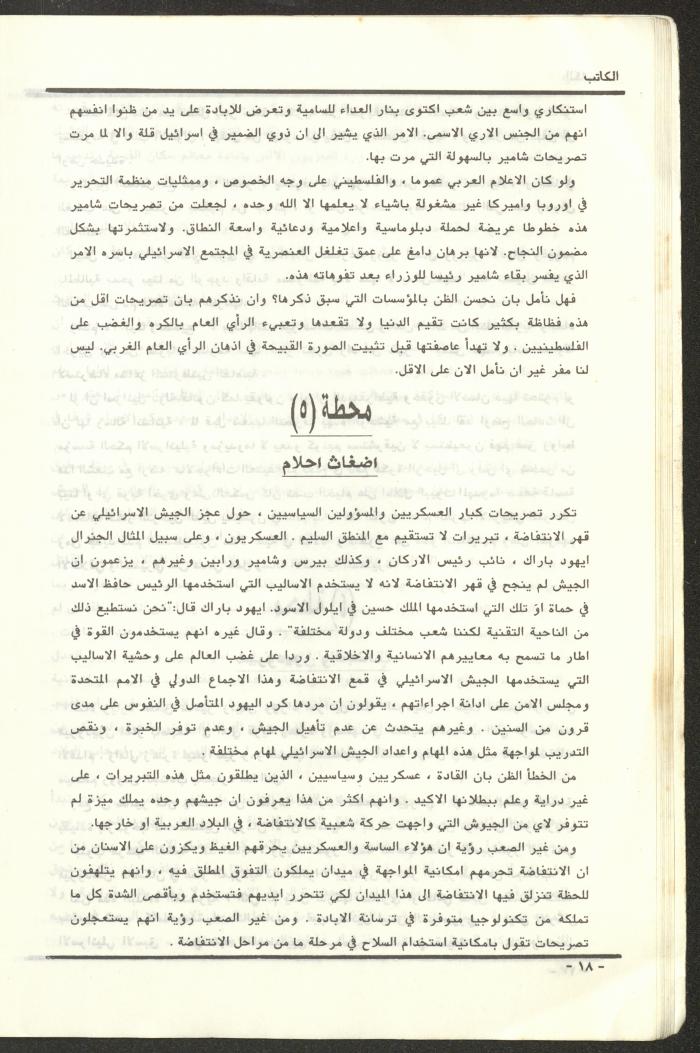 الكاتب
استنكاري واسع بين شعب اكتوى بنار العداء للسامية وتعرض للابادة على يد من ظنوا انفسهم
انهم من الجنس الاري الاسمى. الامر الذي يشير الى ان ذوي الضمير في اسرائيل قلة والا لما مرت
تصريحات شامير بالسهولة التي مرت بها.
ولو كان الاعلام العربي عموما ، والفلسطيني على وجه الخصوص ، وممثليات منظمة التحرير
في اوروبا واميركا غير مشغولة باشياء لا يعلمها الا الله وحده ، لجعلت من تصريحات شامير
هذه خطوطا عريضة لحملة دبلوماسية واعلامية ودعائية واسعة النطاق. ولاستثمرتها بشكل
مضمون النجاح. لانها برهان دامغ على عمق تغلغل العنصرية في المجتمع الاسرائيلي باسره الامر
الذي يفسر بقاء شامير رئيسا للوزراء بعد تفوهاته هذه.
فهل نأمل بان نحسن الظن بالمؤسسات التي سبق ذكرها؟ وان نذكرهم بان تصريحات اقل من
هذه فظاظة بكثير كانت تقيم الدنيا ولا تقعدها وتعبيء الرأي العام بالكره والغضب على
الفلسطينيين . ولا تهدأ عاصفتها قبل تثبيت الصورة القبيحة في اذهان الرأي العام الغربي. ليس
لنا مفر غير ان نأمل الان على الاقل.
محطة (٥)
اضغاث احلام
تكرر تصريحات كبار العسكريين والمسؤولين السياسيين ، حول عجز الجيش الاسرائيلي عن
قهر الانتفاضة ، تبريرات لا تستقيم مع المنطق السليم . العسكريون ، وعلى سبيل المثال الجنرال
ايهود باراك ، نائب رئيس الاركان ، وكذلك بيرس وشامير ورابين وغيرهم ، يزعمون ان
الجيش لم ينجح في قهر الانتفاضة لانه لا يستخدم الاساليب التي استخدمها الرئيس حافظ الاسد
في حماة او تلك التي استخدمها الملك حسين في ايلول الاسود. ايهود باراك قال:"نحن نستطيع ذلك
من الناحية التقنية لكننا شعب مختلف ودولة مختلفة" . وقال غيره انهم يستخدمون القوة في
اطار ما تسمح به معاييرهم الانسانية والاخلاقية . وردا على غضب العالم على وحشية الاساليب
التي يستخدمها الجيش الاسرائيلي في قمع الانتفاضة وهذا الاجماع الدولي في الامم المتحدة
ومجلس الامن على ادانة اجراءاتهم ، يقولون ان مردها كرد اليهود المتأصل في النفوس على مدى
قرون من السنين . وغيرهم يتحدث عن عدم تأهيل الجيش ، وعدم توفر الخبرة ، ونقص
التدريب لمواجهة مثل هذه المهام واعداد الجيش الاسرائيلي لمهام مختلفة .
من الخطأ الظن بان القادة ، عسكريين وسياسيين ، الذين يطلقون مثل هذه التبريرات ، على
غير دراية وعلم ببطلانها الاكيد . وانهم اكثر من هذا يعرفون ان جيشهم وحده يملك ميزة لم
تتوفر لاي من الجيوش التي واجهت حركة شعبية كالانتفاضة ، في البلاد العربية او خارجها.
ومن غير الصعب رؤية ان هؤلاء الساسة والعسكريين يحرقهم الغيظ ويكزون على الاسنان من
ان الانتفاضة تحرمهم امكانية المواجهة في ميدان يملكون التفوق المطلق فيه ، وانهم يتلهفون
للحظة تنزلق فيها الانتفاضة الى هذا الميدان لكي تتحرر ايديهم فتستخدم وبأقصى الشدة كل ما
تملكه من تكنولوجيا متوفرة في ترسانة الابادة . ومن غير الصعب رؤية انهم يستعجلون
تصريحات تقول بامكانية استخدام السلاح في مرحلة ما من مراحل الانتفاضة .
- ١٨ -